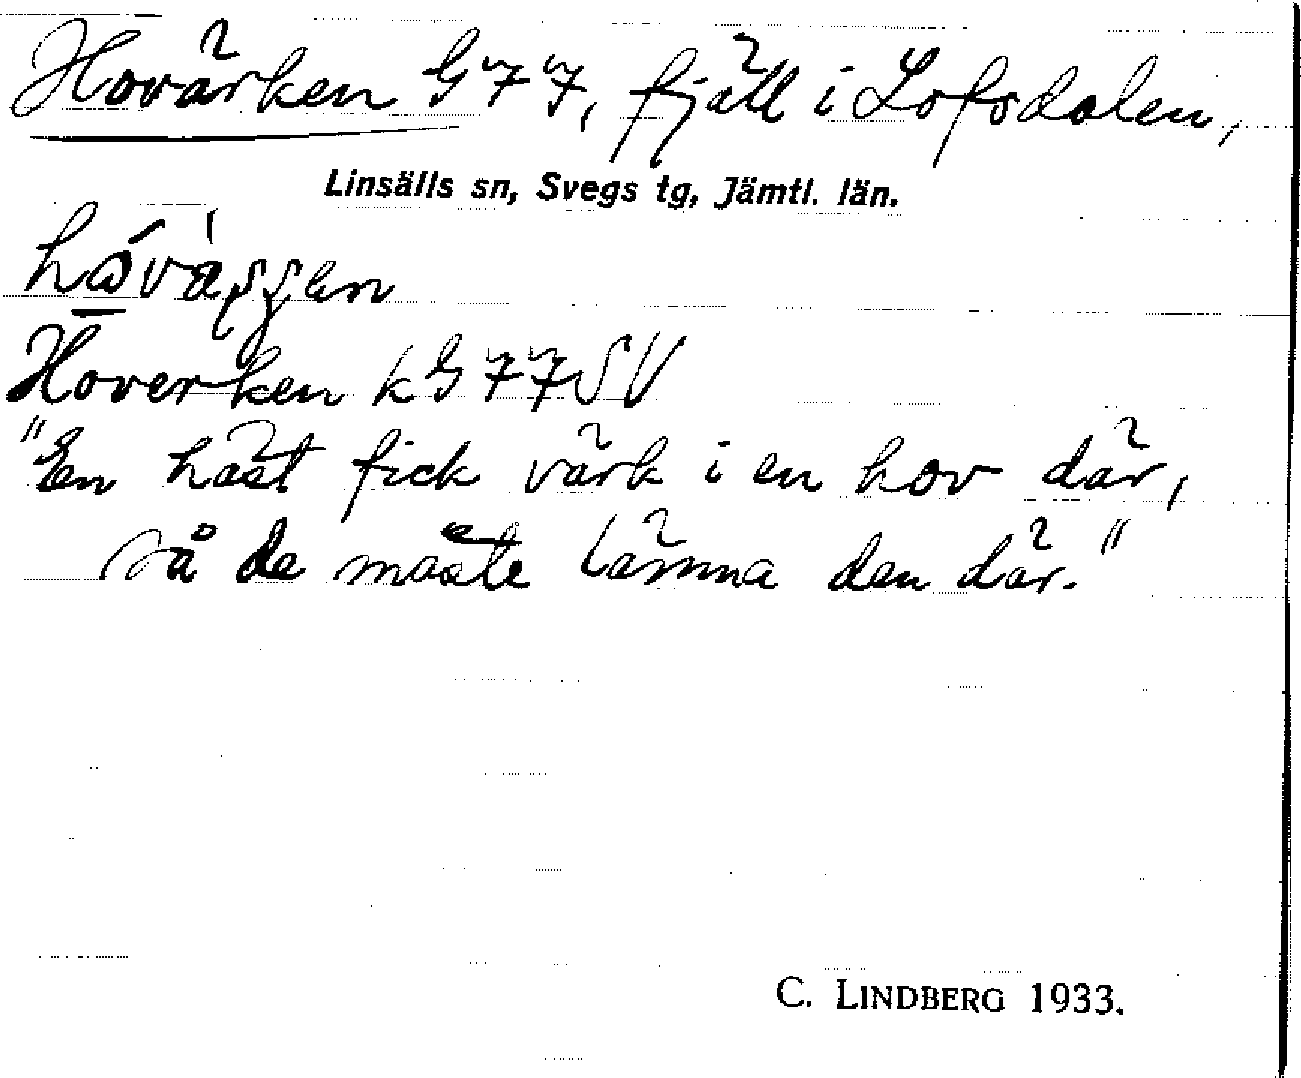 Hovärken G77, fjäll i Lofsdalen,
Linsälls sn, Svegs tg, Jämtl. län.
Hoverken k G77SV
"En häst fick värk i en hov där,
så de måste lämna den där."
C. LINDBERG 1933.